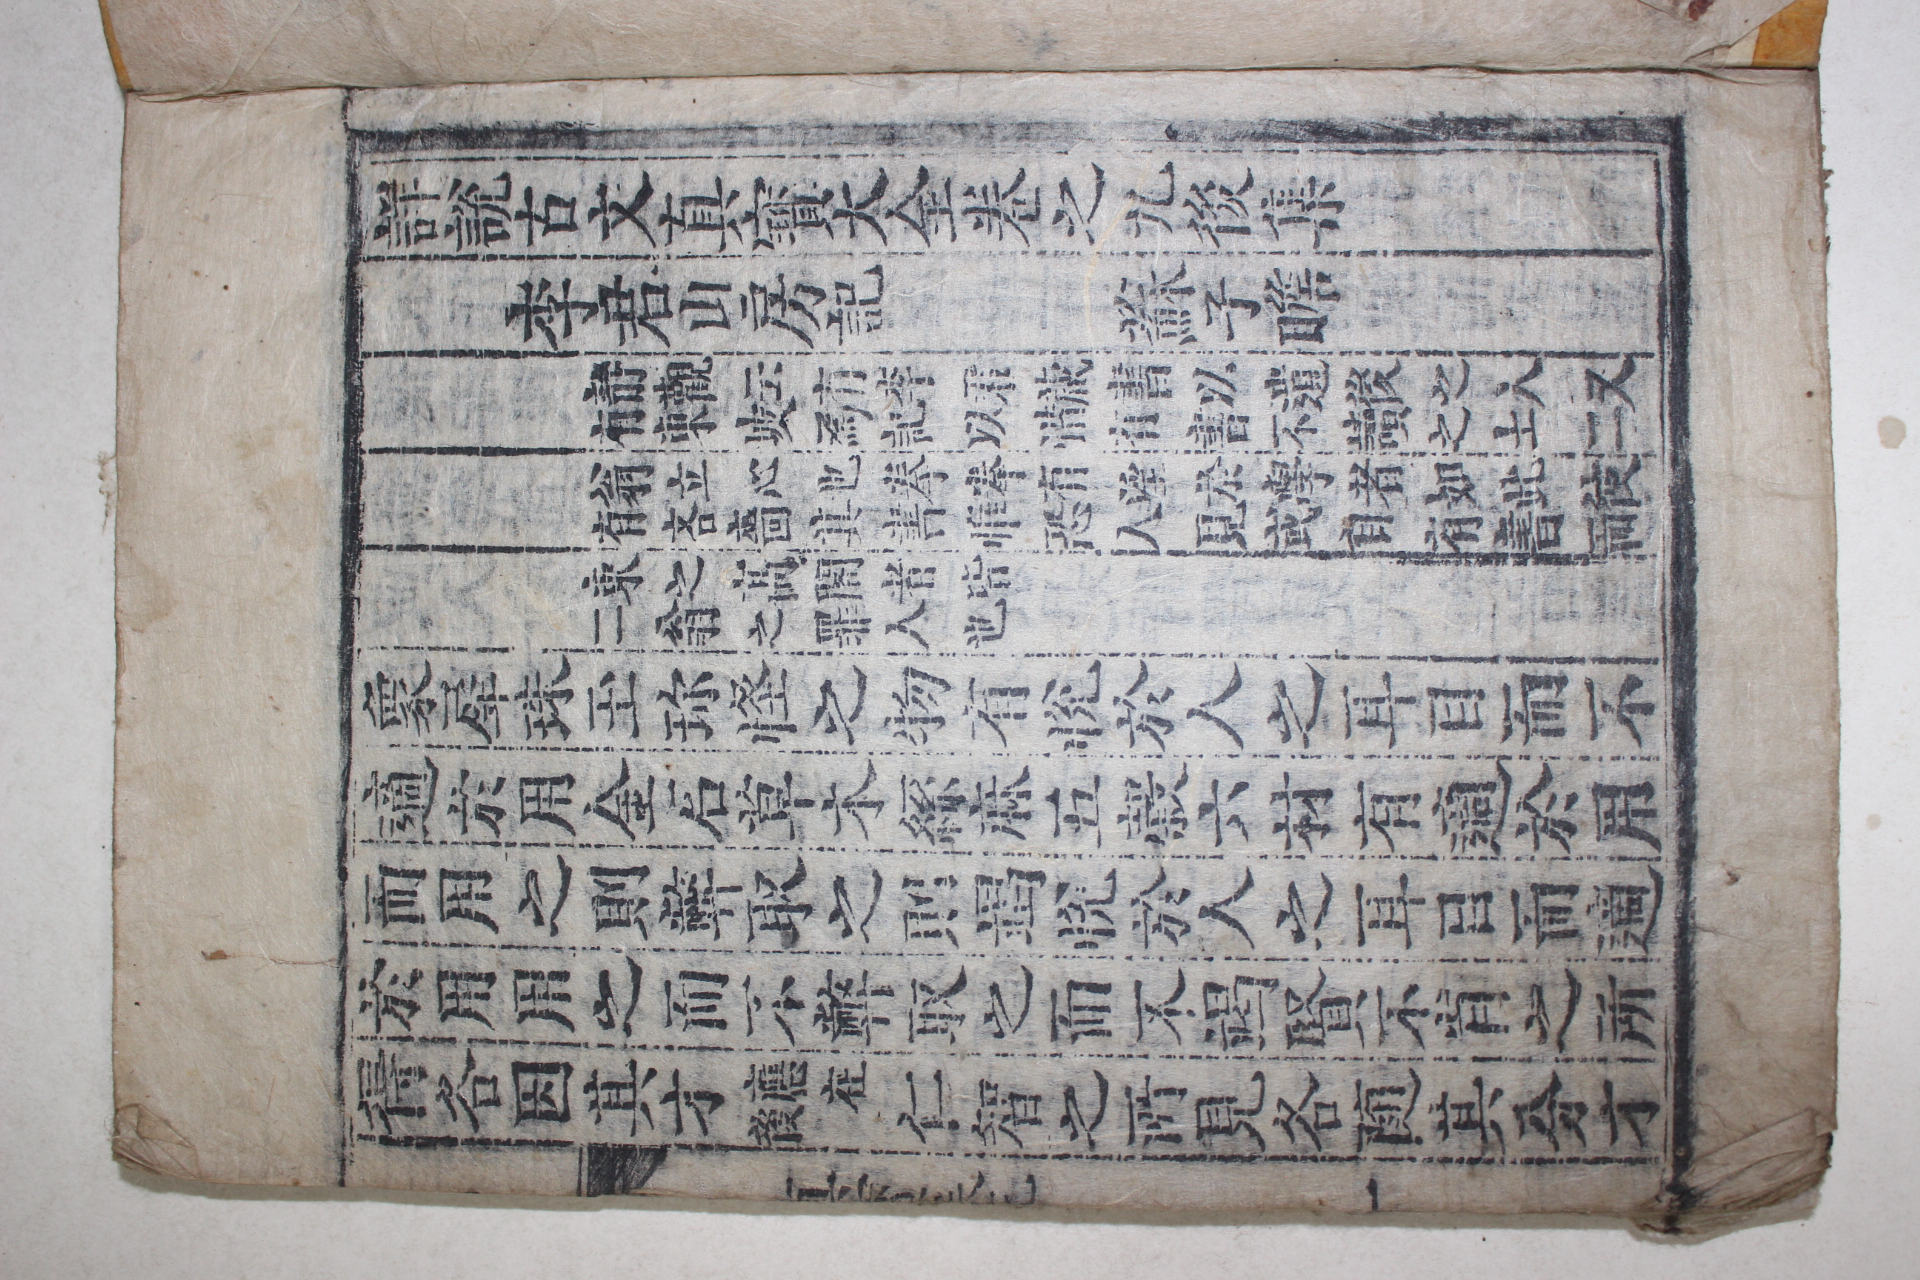 詳說古文真寶大全卷之九後集
李君山房記　蘇子瞻
觀云有李君藏書以遺後之人又
有東坡為記以惜有書不讀之士二
翁立心也拳拳有望於學者如此彼
有吝嗇其書惟恐人見或自有書而
束之高閣者皆
二翁之罪人也
象犀珠玉珎怪之物有悅於人之耳目而不
適於用金石草木絲麻五穀六材有適於用
而用之則弊取之則竭悅於人之耳目而適
於用用之而不弊取之而不竭賢不肖之所
得各因其才應在後仁智之所見各隨其分才
一